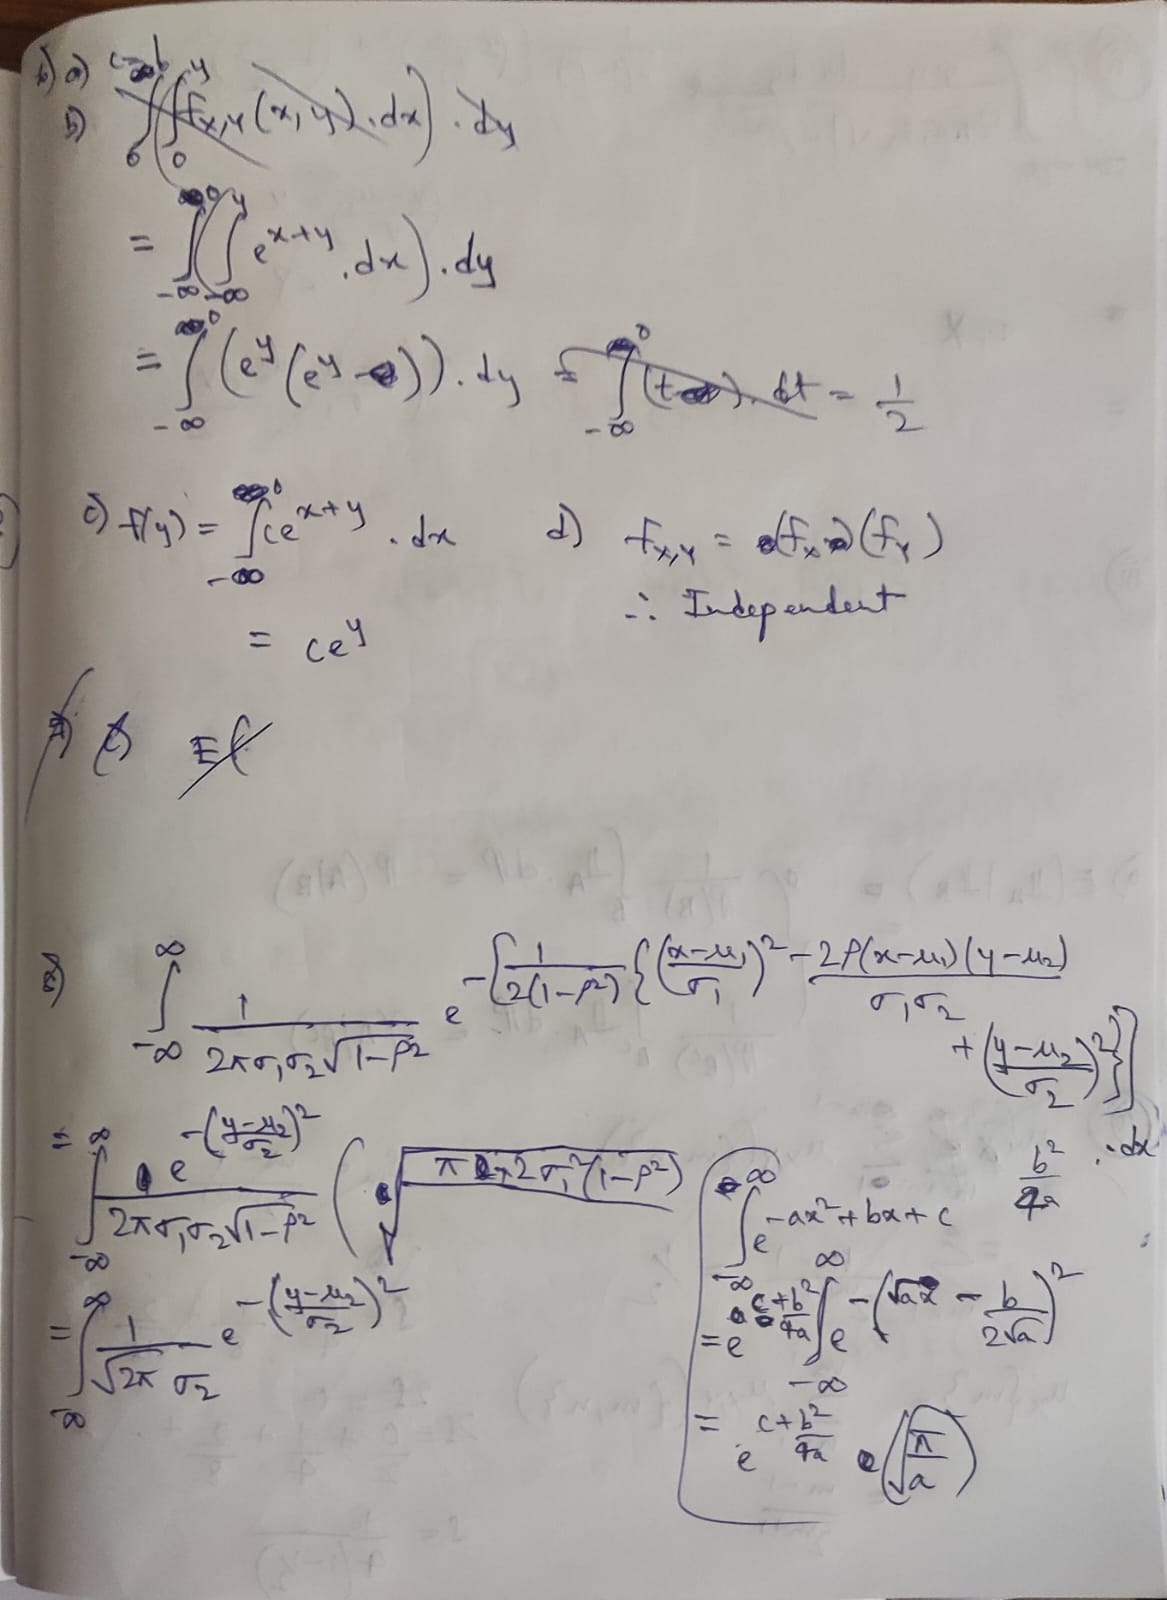 6) a) c=
b) ∫_0 (∫_0^y f_{X,Y}(x,y).dx).dy
= ∫_{-∞}^0 (∫_{-∞}^y e^{x+y}.dx).dy
= ∫_{-∞}^0 (e^y(e^y - )).dy = ∫_{-∞}^0 (t- ).dt = 1/2
c) f(y) = ∫_{-∞}^0 ce^{x+y}.dx d) f_{X,Y} = (f_X)(f_Y)
= ce^y ∴ Independent
E(
∫_{-∞}^∞ 1/(2πσ₁σ₂√(1-ρ²)) e^{-[1/(2(1-ρ²)){((x-μ₁)/σ₁)² - 2ρ(x-μ₁)(y-μ₂)/(σ₁σ₂) + ((y-μ₂)/σ₂)²}]} .dx
= ∫_{-∞}^∞ e^{-((y-μ₂)/σ₂)²}/(2πσ₁σ₂√(1-ρ²)) (√(π 2σ₁²(1-ρ²))
= ∫_{-∞}^∞ 1/(√2π σ₂) e^{-((y-μ₂)/σ₂)²}
b²/4a
∫_{-∞}^∞ e^{-ax²+bx+c}
= e^{c+b²/4a} ∫_{-∞}^∞ e^{-(√ax - b/(2√a))²}
= e^{c+b²/4a} (√(π/a))